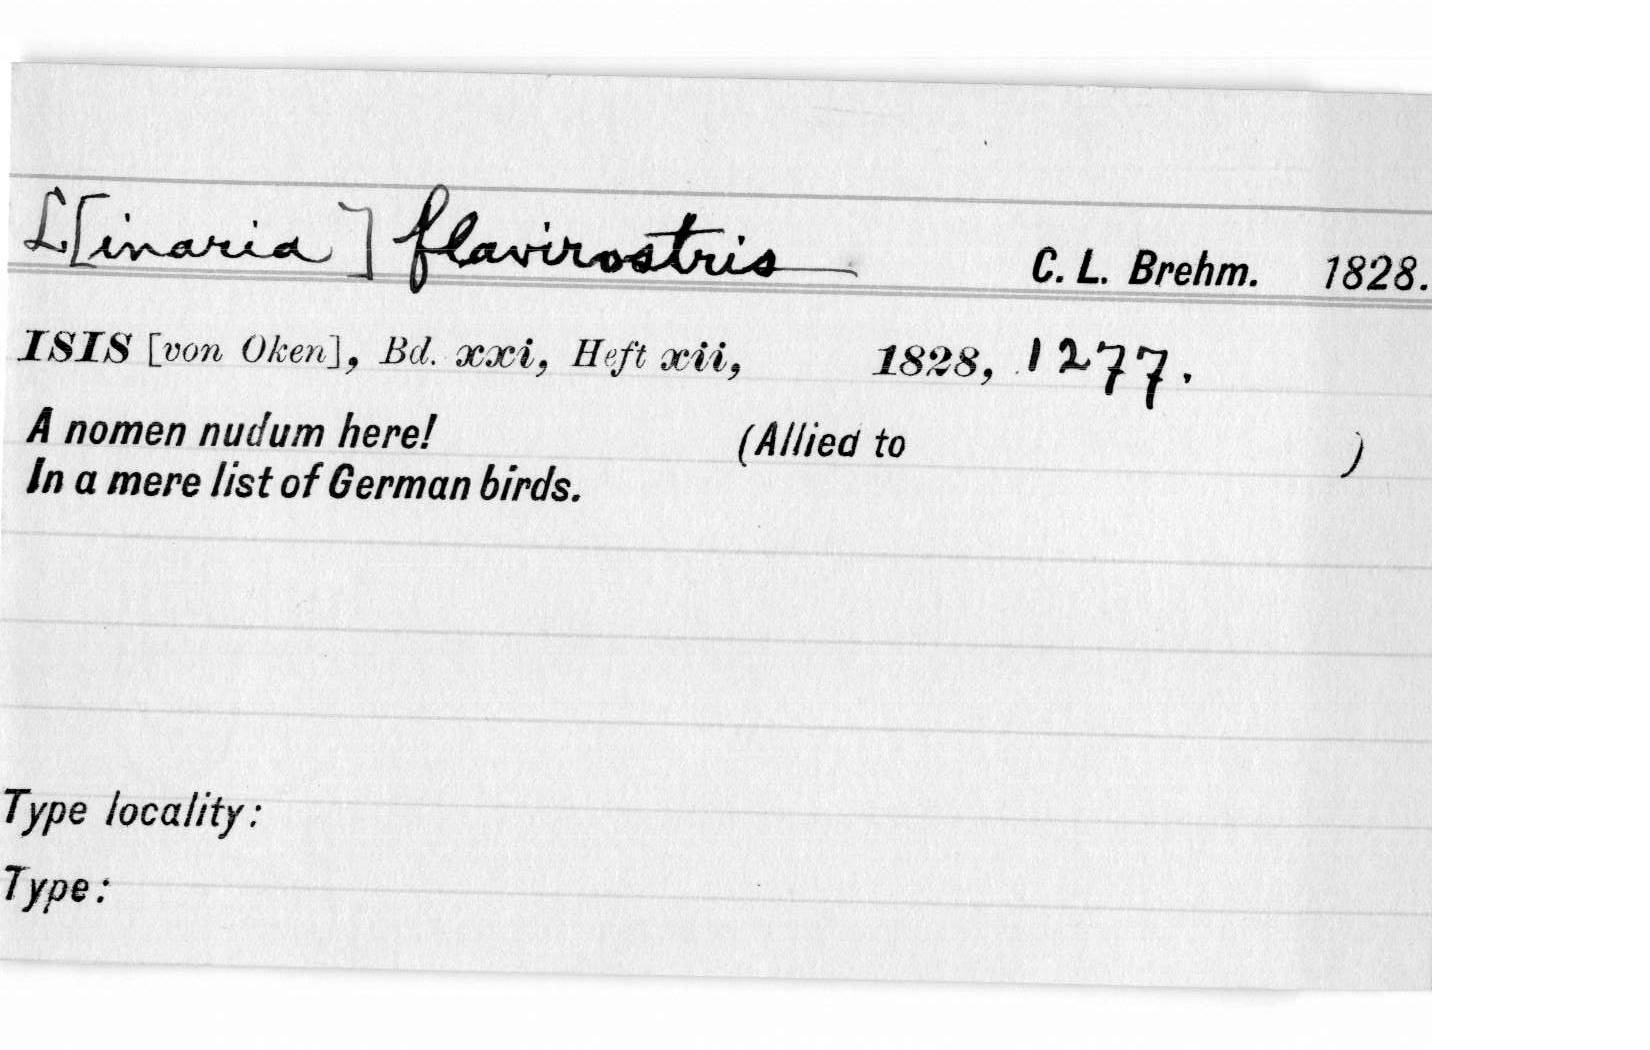 L[inaria] flavirostris C. L. Brehm. 1828.
ISIS [von Oken], Bd. xxi, Heft xii, 1828, 1277.
A nomen nudum here! (Allied to )
In a mere list of German birds.
Type locality:
Type: